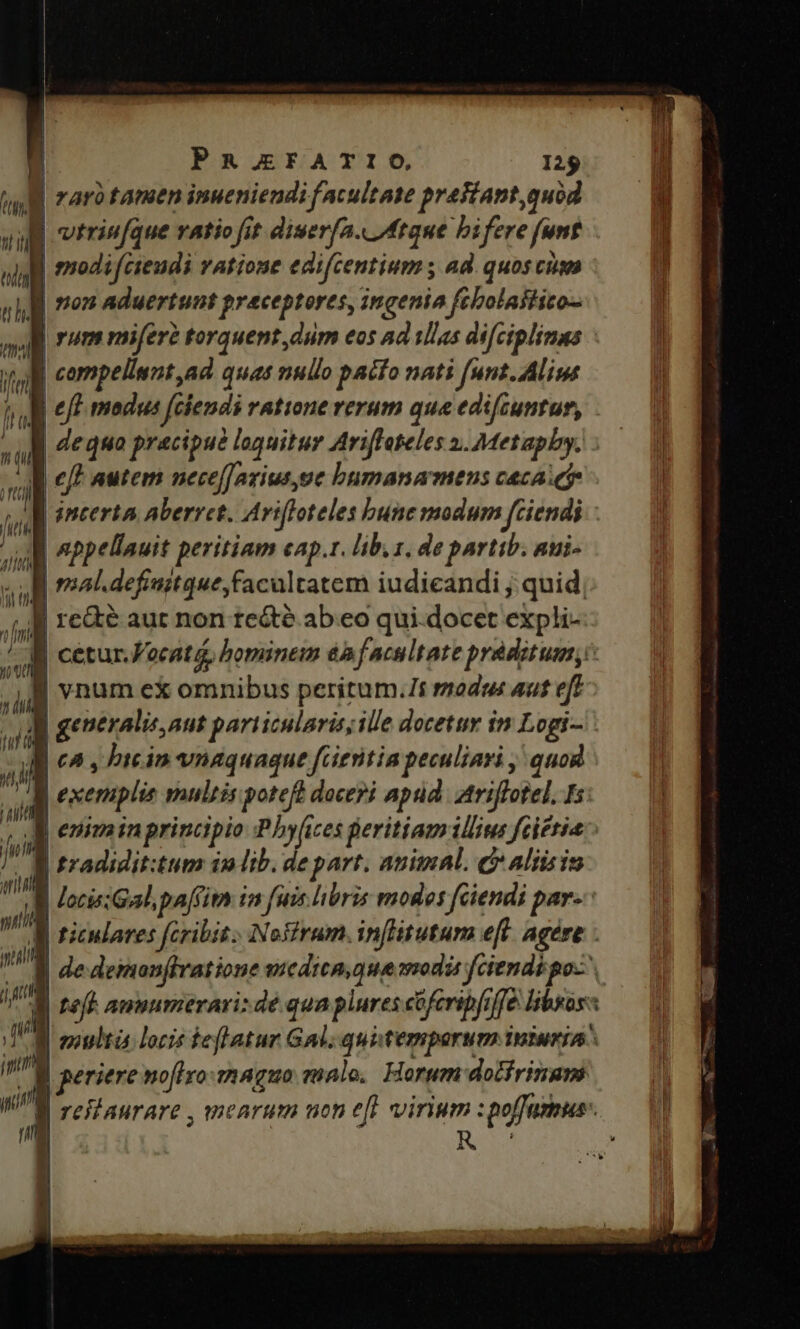 PRÆFATIO, 129
rarò tamen inueniendi facultate præstant, quòd
vtriusque ratio sit diuersa. Atque hi fere sunt
modi sciendi ratione ediscentium; ad quos cùm
non aduertunt præceptores, ingenia scholastico-
rum miserè torquent, dum eos ad illas disciplinas
compellunt, ad quas nullo pacto nati sunt. Alius
est modus sciendi ratione rerum quæ ediscuntur,
de quo præcipuè loquitur Aristoteles 2. Metaphy.
est autem necessarius, ne humana mens cæca &
incerta aberret. Aristoteles hunc modum sciendi
appellauit peritiam cap. 1. lib. 1. de partib. ani-
mal. definitque, facultatem iudicandi, quid
rectè aut non rectè ab eo qui docet expli-
cetur. Vocatq; hominem ea facultate præditum,
vnum ex omnibus peritum. Is modus aut est
generalis, aut particularis; ille docetur in Logi-
ca, hic in vnaquaque scientia peculiari, quod
exemplis multis potest doceri apud Aristotel. Is
enim in principio Physices peritiam illius sciētiæ
tradidit: tum in lib. de part. animal. & aliis in
locis: Gal. passim in suis libris modos sciendi par-
ticulares scribit. Nostrum institutum est agere
de demonstratione medica, quæ modis sciendi po-
test annumerari: de qua plures cōscripsisse libros
multis locis testatur Gal. qui temporum iniuria
periere nostro magno malo. Horum doctrinam
restaurare, mearum non est virium: possumus
R